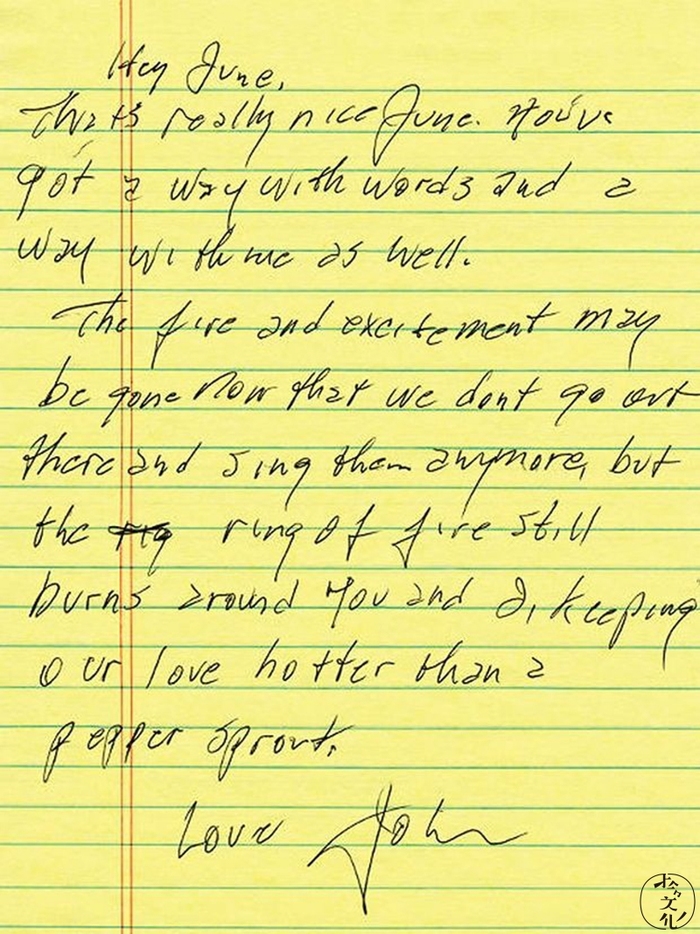 Hey June,
That's really nice June. You've
got a way with words and a
way with me as well.
The fire and excitement may
be gone now that we dont go out
there and sing them anymore, but
the ring of fire still
burns around you and I, keeping
our love hotter than a
pepper sprout.
Love John
文化